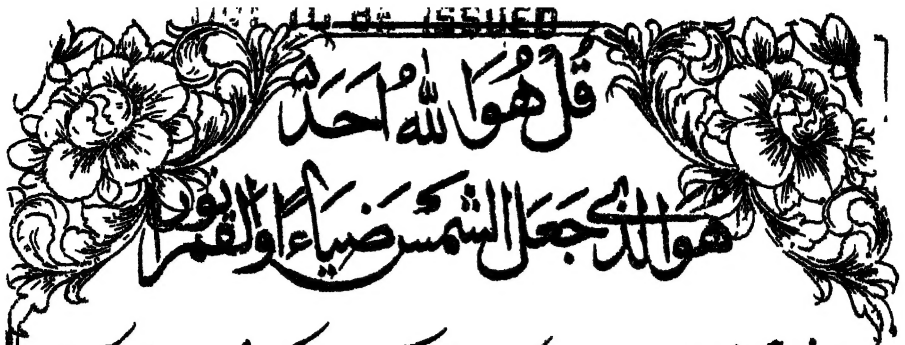 ISSUED
قُلْ هُوَ اللهُ اَحَدٌ
هُوَ الَّذِي جَعَلَ الشَّمْسَ ضِيَاءً وَالْقَمَرَ نُورًا